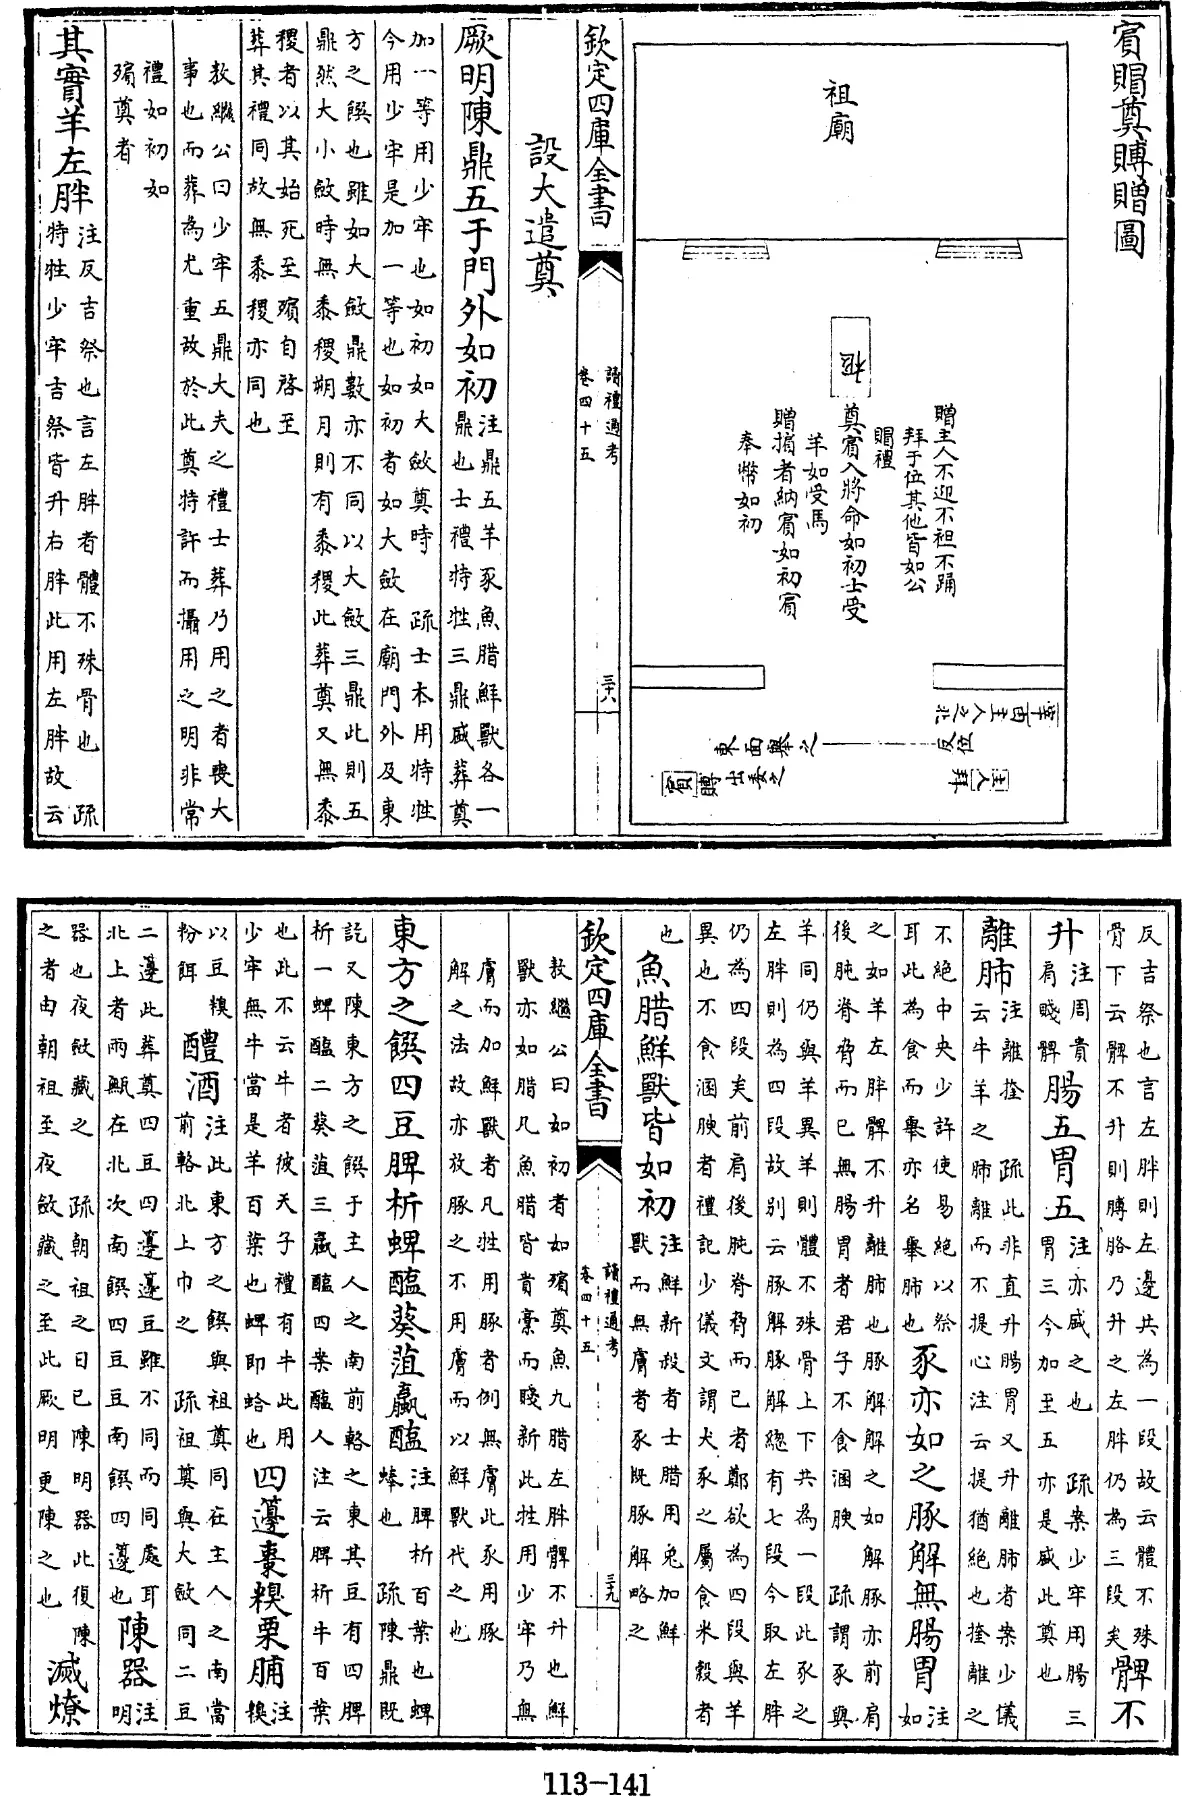 賔賵奠賻贈圖
祖廟
柩
贈主人不迎不袒不踊
拜于位其他皆如公
賵禮
奠賔入將命如初士受
羊如受馬
贈擯者納賔如初賔
奉幣如初
宰由主人之北
反位
東面舉之
主人拜
賔賻出委之
欽定四庫全書
讀禮通考
卷四十五
三十八
設大遣奠
厥明陳鼎五于門外如初 注鼎五羊豕魚腊鮮獸各一鼎也士禮特牲三鼎盛葬奠
加一等用少牢也如初如大斂奠時 疏士本用特牲
今用少牢是加一等也如初者如大斂在廟門外及東
方之饌也雖如大斂鼎數亦不同以大斂三鼎此則五
鼎然大小斂時無黍稷朔月則有黍稷此葬奠又無黍
稷者以其始死至殯自啓至
葬其禮同故無黍稷亦同也
敖繼公曰少牢五鼎大夫之禮士葬乃用之者喪大
事也而葬為尤重故於此奠特許而攝用之明非常
禮如初如
殯奠者
其實羊左胖 注反吉祭也言左胖者體不殊骨也 疏特牲少牢吉祭皆升右胖此用左胖故云
反吉祭也言左胖則左邊共為一段故云體不殊
骨下云髀不升則膊胳乃升之左胖仍為三段矣 髀不
升 注周貴肩賤髀 腸五胃五 注亦盛之也 疏案少牢用腸三胃三今加至五亦是盛此奠也
離肺 注離捦 疏此非直升腸胃又升離肺者案少儀云牛羊之肺離而不提心注云提猶絶也捦離之
不絶中央少許使易絶以祭
耳此為食而舉亦名舉肺也 豕亦如之豚解無腸胃 注如
之如羊左胖髀不升離肺也豚解解之如解豚亦前肩
後肫脊脅而已無腸胃者君子不食溷腴 疏謂豕與
羊同仍與羊異羊則體不殊骨上下共為一段此豕之
左胖則為四段故别云豚解豚解緫有七段今取左胖
仍為四段矣前肩後肫脊脅而已者鄭欲為四段與羊
異也不食溷腴者禮記少儀文謂犬豕之屬食米穀者
也 魚腊鮮獸皆如初 注鮮新殺者士腊用兔加鮮獸而無膚者豕既豚解略之
欽定四庫全書
讀禮通考
卷四十五
三十九
敖繼公曰如初者如殯奠魚九腊左胖髀不升也鮮
獸亦如腊凡魚腊皆貴槀而賤新此牲用少牢乃無
膚而加鮮獸者凡牲用豚者例無膚此豕用豚
解之法故亦放豚之不用膚而以鮮獸代之也
東方之饌四豆脾析蜱醢葵菹蠃醢 注脾析百葉也蜱蜯也 疏陳鼎既
訖又陳東方之饌于主人之南前輅之東其豆有四脾
析一蜱醢二葵菹三蠃醢四案醢人注云脾析牛百葉
也此不云牛者彼天子禮有牛此用
少牢無牛當是羊百葉也蜱即蛤也 四籩棗糗栗脯 注糗
以豆糗
粉餌 醴酒 注此東方之饌與祖奠同在主人之南當前輅北上巾之 疏祖奠與大斂同二豆
二籩此葬奠四豆四籩籩豆雖不同而同處耳
北上者兩甒在北次南饌四豆豆南饌四籩也 陳器 注明
器也夜斂藏之 疏朝祖之日已陳明器此復陳
之者由朝祖至夜斂藏之至此厥明更陳之也 滅燎
113-141